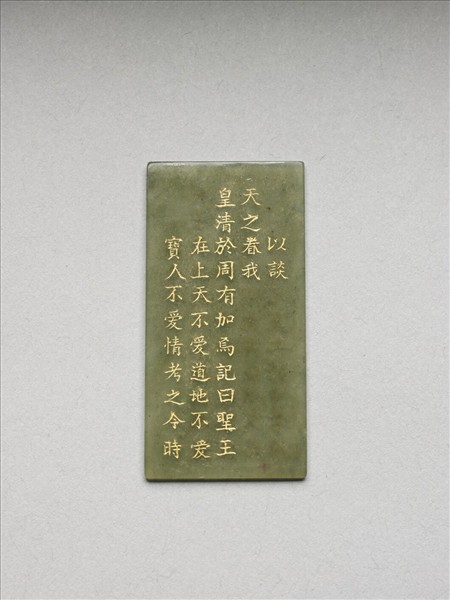 以談
天之眷我
皇清於周有加焉記曰聖王
在上天不愛道地不愛
寶人不愛情考之今時